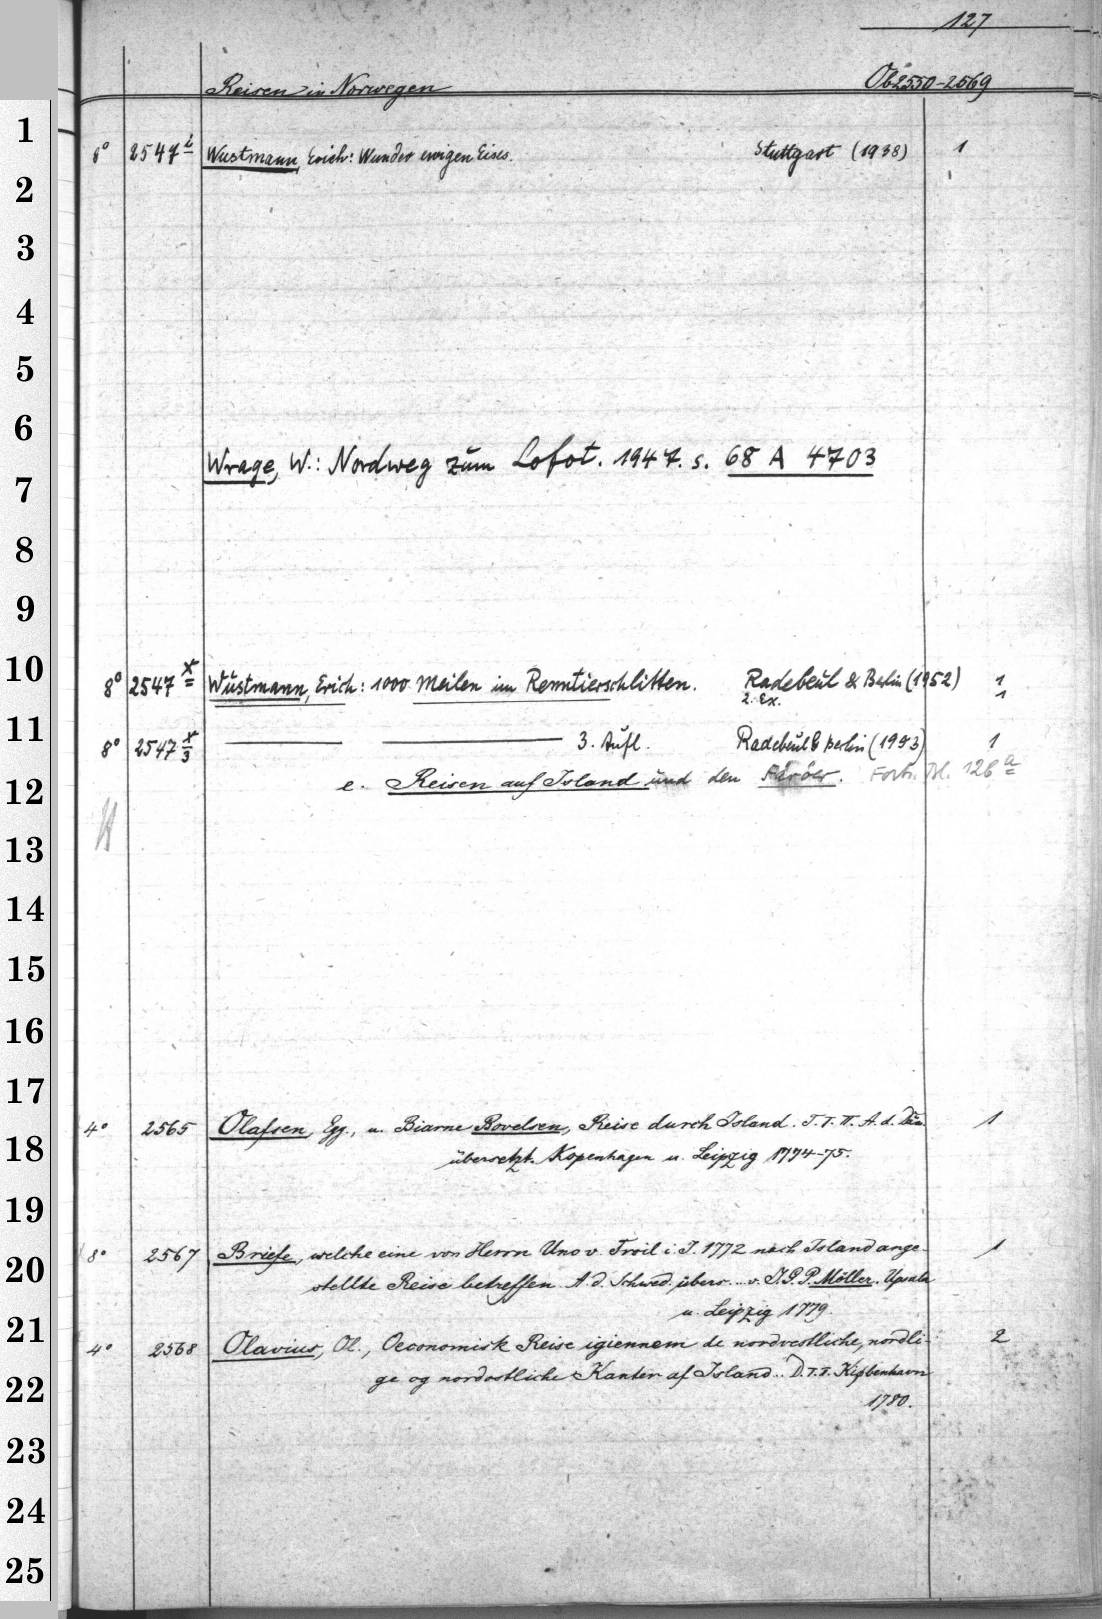 127
Reisen in Norwegen Ob 2550-2569
1
8° 2547 i Wustmann, Erich: Wunder ewigen Eises. Stuttgart (1938) 1
2
3
4
5
6
Wrage, W.: Nordweg zum Lofot. 1947. s. 68 A 4703
7
8
9
10
8° 2547 x Wustmann, Erich: 1000 Meilen im Renntierschlitten. Radebeul & Berlin (1952) 1
2. Ex. 1
11
8° 2547 x/3 — — 3. Aufl. Radebeul & Berlin (1953) 1
e. Reisen auf Island und den Färöer. Forts. Bl. 126 a
12
13
14
15
16
17
4° 2565 Olafsen, Egg., u. Biarne Povelsen, Reise durch Island. T. I. II. A. d. Dän.
1
18
übersetzt. Kopenhagen u. Leipzig 1774-75.
19
8° 2567 Briefe, welche eine von Herrn Uno v. Troil i. J. 1772 nach Island ange- 1
20
stellte Reise betreffen. A. d. Schwed. übers. .. v. J. P. Möller. Upsala
u. Leipzig 1779.
21
4° 2568 Olavius, Ol., Oeconomisk Reise igiennem de nordvestlige, nordli- 2
22
ge og nordostlige Kanter af Island.. D. I. II. Kiøbenhavn
1780.
23
24
25